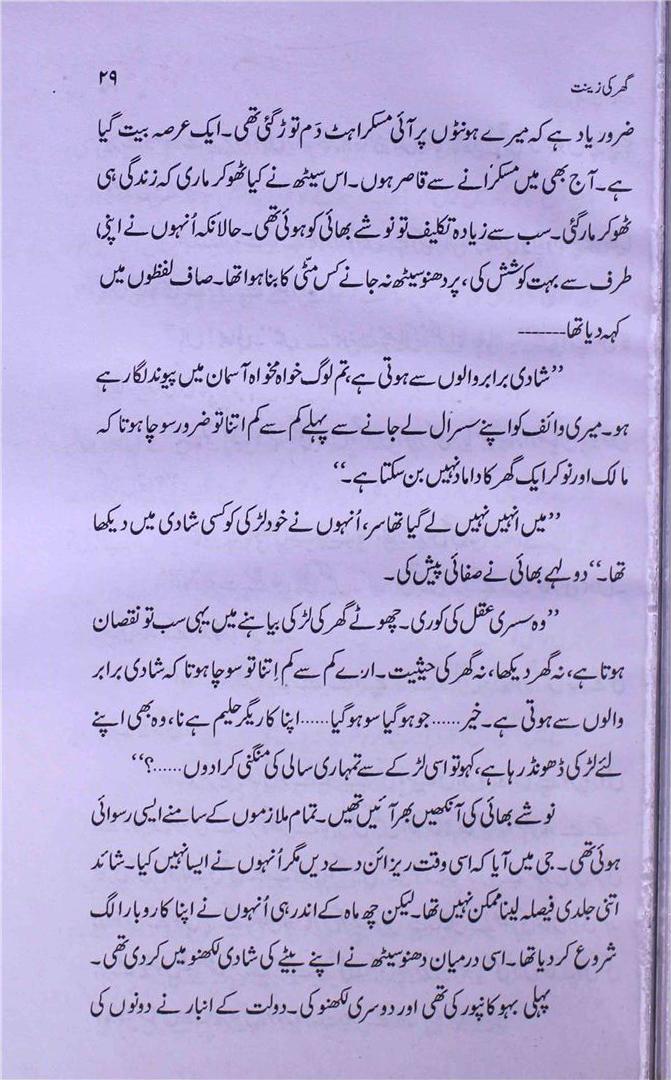 گھر کی زینت ۲۹
ضرور یاد ہے کہ میرے ہونٹوں پر آئی مسکراہٹ دَم توڑ گئی تھی۔ ایک عرصہ بیت گیا
ہے۔ آج بھی میں مسکرانے سے قاصر ہوں۔ اس سیٹھ نے کیا ٹھوکر ماری کہ زندگی ہی
ٹھوکر مار گئی۔ سب سے زیادہ تکلیف تو نوشے بھائی کو ہوئی تھی۔ حالانکہ اُنہوں نے اپنی
طرف سے بہت کوشش کی، پر دھنو سیٹھ نہ جانے کس مٹّی کا بنا ہوا تھا۔ صاف لفظوں میں
کہہ دیا تھا--------
”شادی برابر والوں سے ہوتی ہے، تم لوگ خواہ مخواہ آسمان میں پیوند لگا رہے
ہو۔ میری وائف کو اپنے سسرال لے جانے سے پہلے کم سے کم اتنا تو ضرور سوچا ہوتا کہ
مالک اور نوکر ایک گھر کا داماد نہیں بن سکتا ہے۔“
”میں انہیں نہیں لے گیا تھا سر، اُنہوں نے خود لڑکی کو کسی شادی میں دیکھا
تھا۔“ دولہے بھائی نے صفائی پیش کی۔
”وہ سسری عقل کی کوری۔ چھوٹے گھر کی لڑکی بیاہنے میں یہی سب تو نقصان
ہوتا ہے، نہ گھر دیکھا، نہ گھر کی حیثیت۔ ارے کم سے کم اِتنا تو سوچا ہوتا کہ شادی برابر
والوں سے ہوتی ہے۔ خیر...... جو ہو گیا سو ہو گیا...... اپنا کاریگر حلیم ہے نا، وہ بھی اپنے
لئے لڑکی ڈھونڈ رہا ہے، کہو تو اسی لڑکے سے تمہاری سالی کی منگنی کرا دوں......؟“
نوشے بھائی کی آنکھیں بھر آئیں تھیں۔ تمام ملازموں کے سامنے ایسی رسوائی
ہوئی تھی۔ جی میں آیا کہ اسی وقت ریزائن دے دیں مگر اُنہوں نے ایسا نہیں کیا۔ شائد
اتنی جلدی فیصلہ لینا ممکن نہیں تھا۔ لیکن چھ ماہ کے اندر ہی اُنہوں نے اپنا کاروبار الگ
شروع کر دیا تھا۔ اسی درمیان دھنو سیٹھ نے اپنے بیٹے کی شادی لکھنو میں کر دی تھی۔
پہلی بہو کانپور کی تھی اور دوسری لکھنو کی۔ دولت کے انبار نے دونوں کی